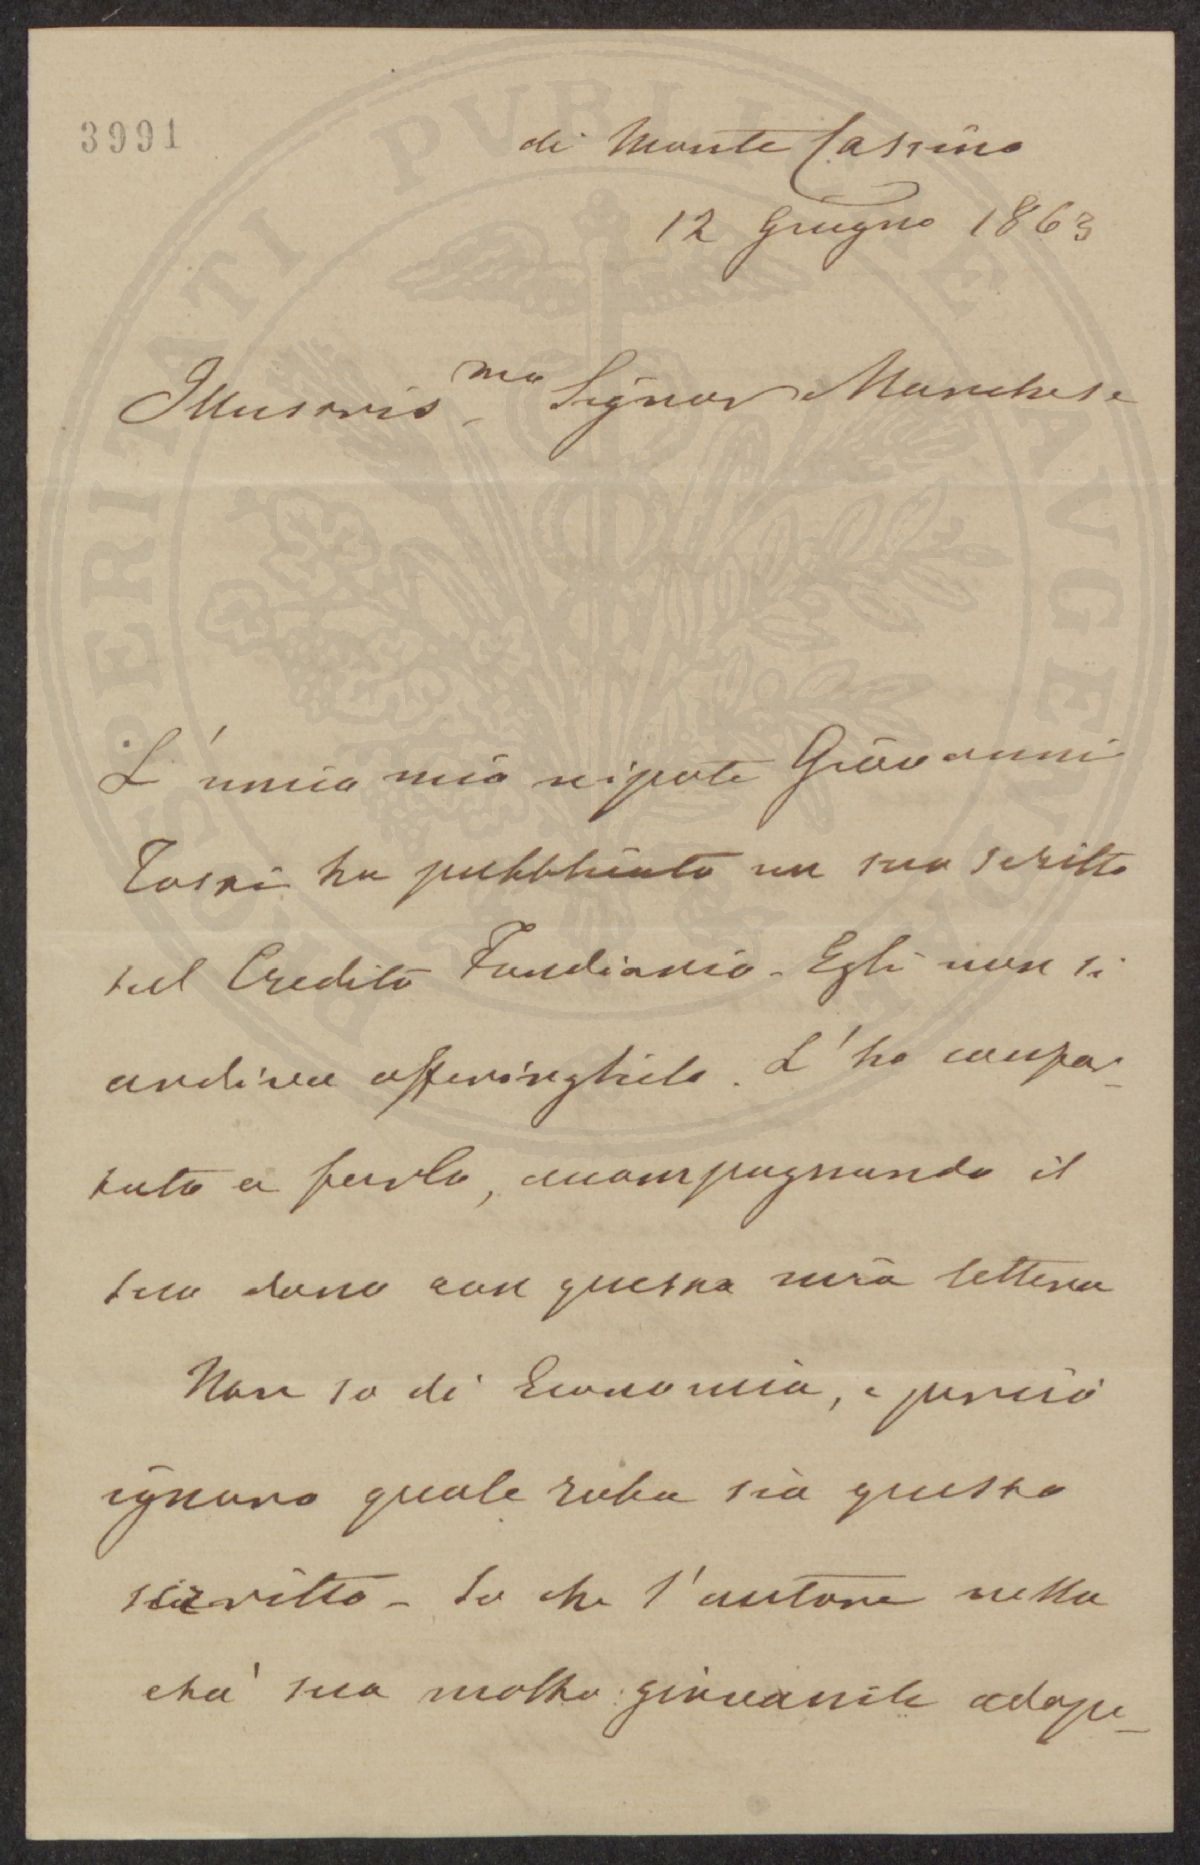 3991
di Monte Cassino
12 Giugno 1863
Illustris.mo Signor Marchese
L'unico mio nipote Giovanni
Tosti ha pubblicato un suo scritto
sul Credito Fondiario - Egli non si
ardiva offeringhielo. L'ho confor-
tato a farlo, accompagnando il
suo dono con questa mia lettera
Non so di Economia, e perciò
ignoro quale roba sia questo
scritto - So che l'autore nella
età sua molto giovanile adope-
PROSPERITATI PVBLICAE AVGENDAE